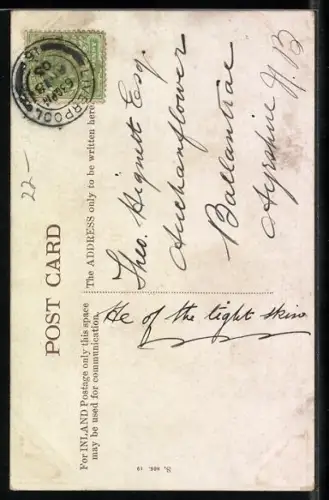 POST CARD
For INLAND Postage only this space
may be used for communication.
The ADDRESS only to be written here.
LIVERPOOL
05
22-
Theo. Hignett Esq.
Auchanflower
Ballantrae
Ayrshire N.B
He of the tight skin
S, SER. 19